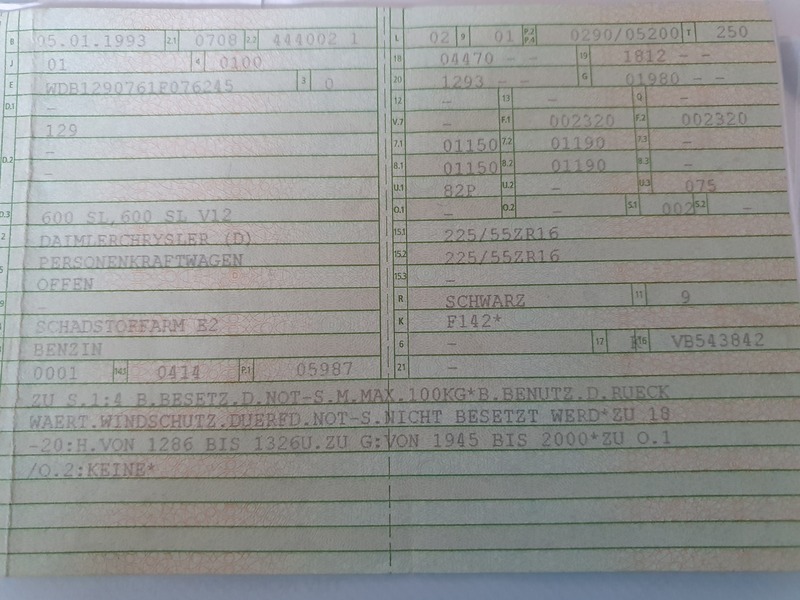 B 05.01.1993 2.1 0708 2.2 444002 1
J 01 4 0100
E WDB1290761F076245 3 0
D.1 -
129
-
D.2 -
D.3 600 SL,600 SL V12
2 DAIMLERCHRYSLER (D)
PERSONENKRAFTWAGEN
5 OFFEN
9 -
SCHADSTOFFARM E2
BENZIN
0001 14.1 0414 P.1 05987
L 02 9 01 P.2 P.4 0290/05200 T 250
18 04470 - - 19 1812 - -
20 1293 - - G 01980 - -
12 - 13 - Q -
V.7 - F.1 002320 F.2 002320
7.1 01150 7.2 01190 7.3 -
8.1 01150 8.2 01190 8.3 -
U.1 82P U.2 - U.3 075
O.1 - O.2 - S.1 002 S.2 -
15.1 225/55ZR16
15.2 225/55ZR16
15.3 -
R SCHWARZ 11 9
K F142*
6 - 17 K 16 VB543842
21 -
ZU S.1:4 B.BESETZ.D.NOT-S.M.MAX.100KG*B.BENUTZ.D.RUECK
WAERT.WINDSCHUTZ.DUERFD.NOT-S.NICHT BESETZT WERD*ZU 18
-20:H.VON 1286 BIS 1326U.ZU G:VON 1945 BIS 2000*ZU O.1
/O.2:KEINE*